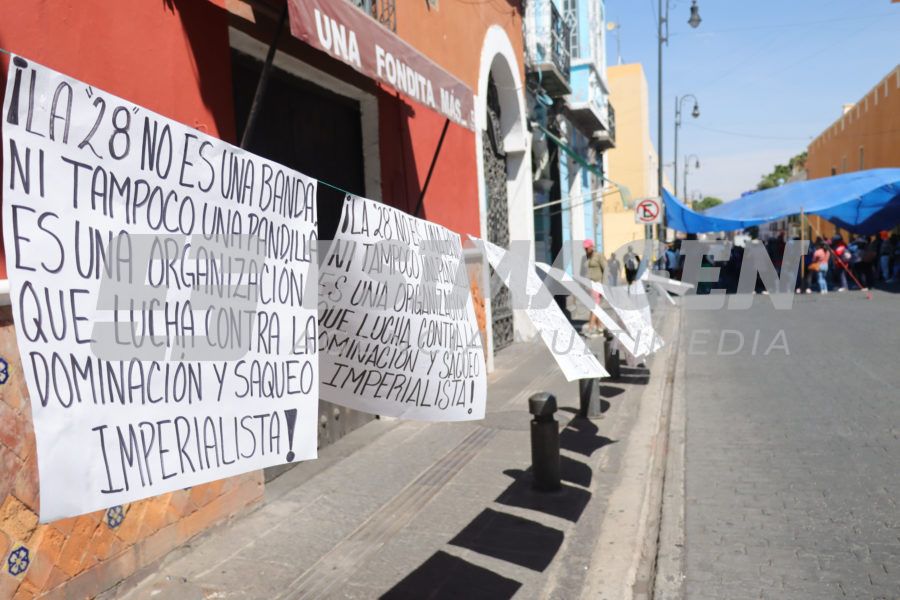 UNA FONDITA MÁS...
¡LA "28" NO ES UNA BANDA,
NI TAMPOCO UNA PANDILLA
ES UNA ORGANIZACIÓN
QUE LUCHA CONTRA LA
DOMINACIÓN Y SAQUEO
IMPERIALISTA!
¡LA "28" NO ES UNA
NI TAMPOCO UNA
ES UNA ORGANIZACIÓN
QUE LUCHA CONTRA LA
DOMINACIÓN Y SAQUEO
IMPERIALISTA!
E
IMAGEN
MULTIMEDIA